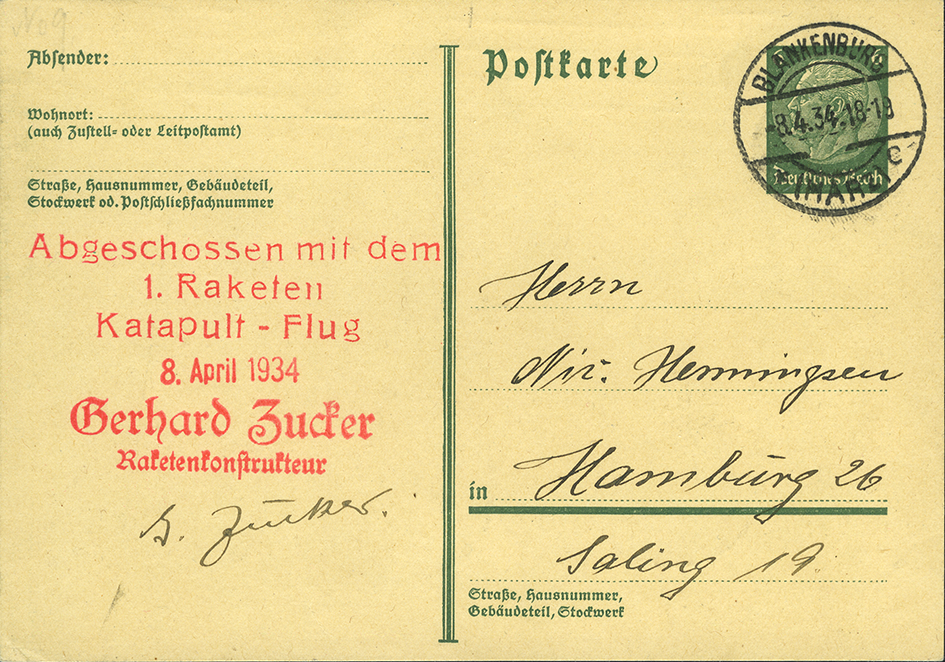 No 9
Absender:
Wohnort:
(auch Zustell- oder Leitpostamt)
Straße, Hausnummer, Gebäudeteil,
Stockwerk od. Postschließfachnummer
Abgeschossen mit dem
1. Raketen
Katapult - Flug
8. April 1934
Gerhard Zucker
Raketenkonstrukteur
G. Zucker.
Postkarte
BLANKENBURG
-8.4.34.18-19
(HARZ) c
Deutsches Reich
Herrn
Nic. Henningsen
in Hamburg 26
Saling 19.
Straße, Hausnummer,
Gebäudeteil, Stockwerk